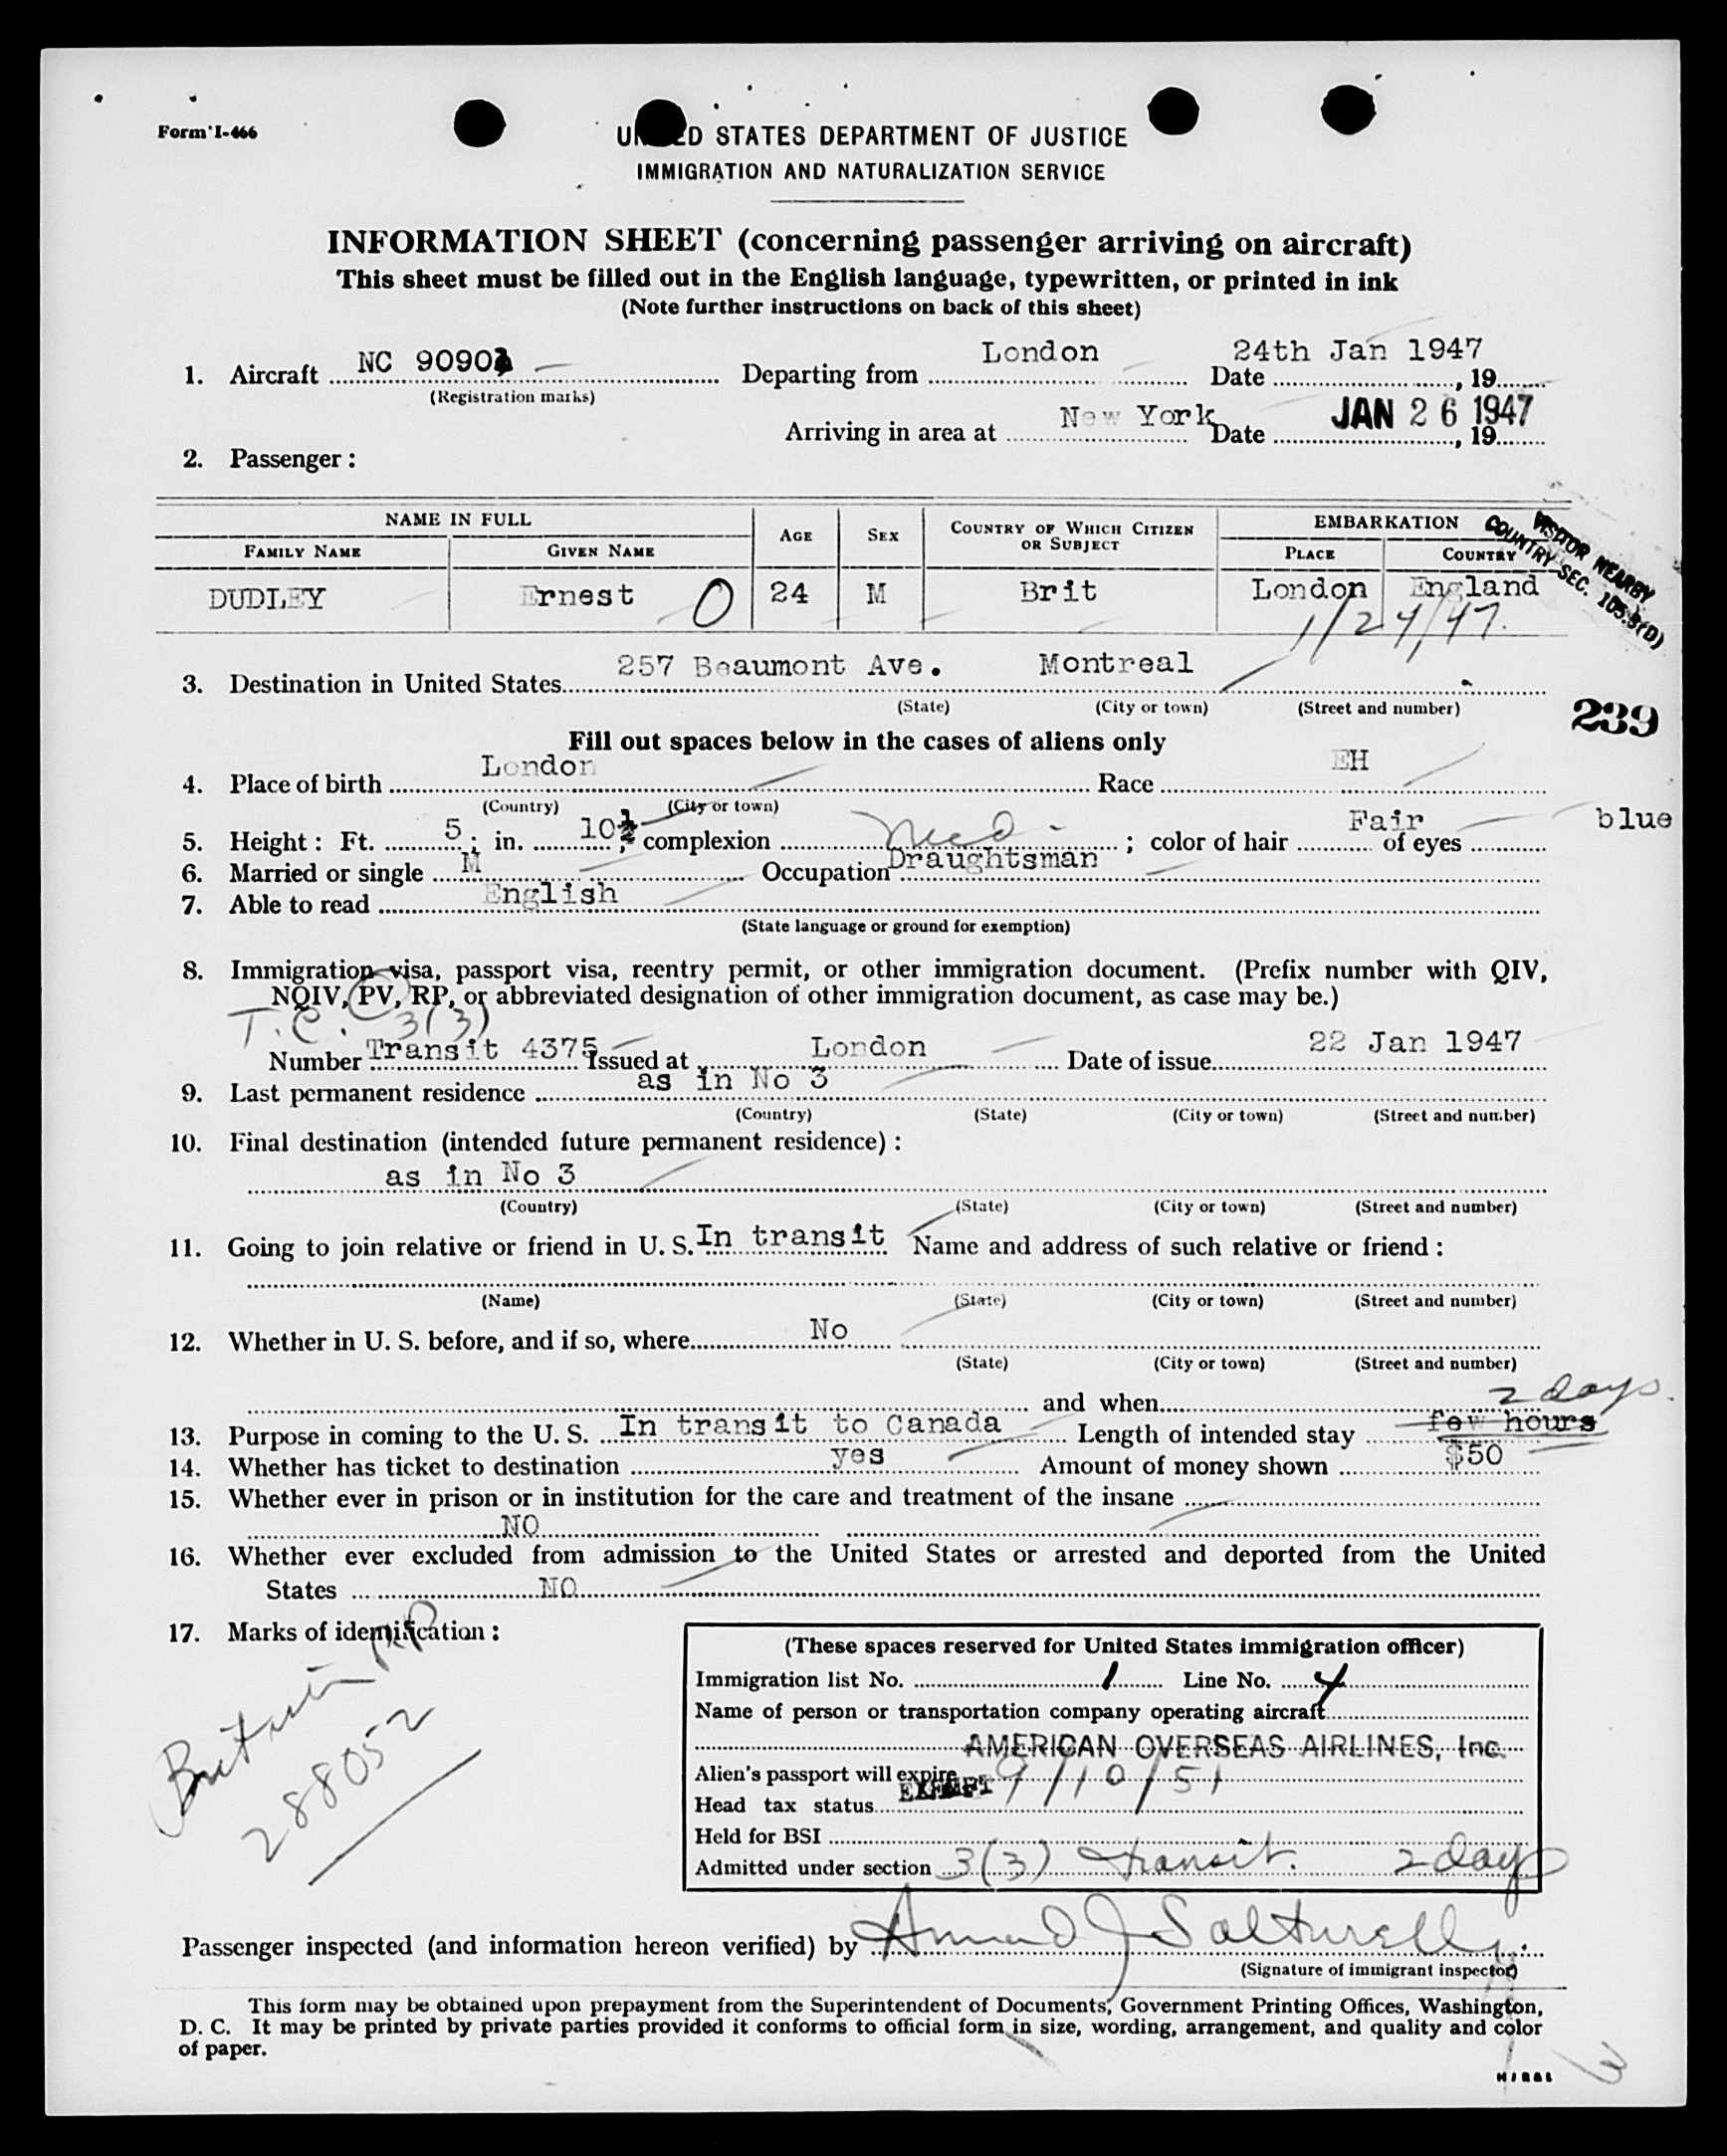 Form I-466
UNITED STATES DEPARTMENT OF JUSTICE
IMMIGRATION AND NATURALIZATION SERVICE
INFORMATION SHEET (concerning passenger arriving on aircraft)
This sheet must be filled out in the English language, typewritten, or printed in ink
(Note further instructions on back of this sheet)
1. Aircraft NC 9090 Departing from London Date 24th Jan 1947, 19
(Registration marks)
Arriving in area at New York Date JAN 26 1947, 19
2. Passenger:
NAME IN FULL
FAMILY NAME GIVEN NAME AGE SEX COUNTRY OF WHICH CITIZEN OR SUBJECT EMBARKATION PLACE COUNTRY
VISITOR NEARBY
COUNTRY SEC. 105.3(D)
DUDLEY Ernest O 24 M Brit London England
1/24/47.
3. Destination in United States 257 Beaumont Ave. Montreal
(State) (City or town) (Street and number)
239
Fill out spaces below in the cases of aliens only
4. Place of birth London Race EH
(Country) (City or town)
5. Height: Ft. 5; in. 10½; complexion Med -; color of hair Fair of eyes blue
6. Married or single M Occupation Draughtsman
7. Able to read English
(State language or ground for exemption)
8. Immigration visa, passport visa, reentry permit, or other immigration document. (Prefix number with QIV,
NQIV, PV, RP, or abbreviated designation of other immigration document, as case may be.)
T.C. 3(3)
Number Transit 4375 Issued at London Date of issue 22 Jan 1947
9. Last permanent residence as in No 3
(Country) (State) (City or town) (Street and number)
10. Final destination (intended future permanent residence):
as in No 3
(Country) (State) (City or town) (Street and number)
11. Going to join relative or friend in U. S. In transit Name and address of such relative or friend:
(Name) (State) (City or town) (Street and number)
12. Whether in U. S. before, and if so, where No
(State) (City or town) (Street and number)
and when 2 days.
13. Purpose in coming to the U. S. In transit to Canada Length of intended stay few hours
14. Whether has ticket to destination yes Amount of money shown $50
15. Whether ever in prison or in institution for the care and treatment of the insane
NO
16. Whether ever excluded from admission to the United States or arrested and deported from the United
States NO
17. Marks of identification:
British PP
288052
(These spaces reserved for United States immigration officer)
Immigration list No. 1 Line No. 4
Name of person or transportation company operating aircraft
AMERICAN OVERSEAS AIRLINES, Inc.
Alien's passport will expire 9/10/51
Head tax status EXEMPT
Held for BSI
Admitted under section 3(3) transit. 2 days
Passenger inspected (and information hereon verified) by
(Signature of immigrant inspector)
This form may be obtained upon prepayment from the Superintendent of Documents, Government Printing Offices, Washington,
D. C. It may be printed by private parties provided it conforms to official form in size, wording, arrangement, and quality and color
of paper.